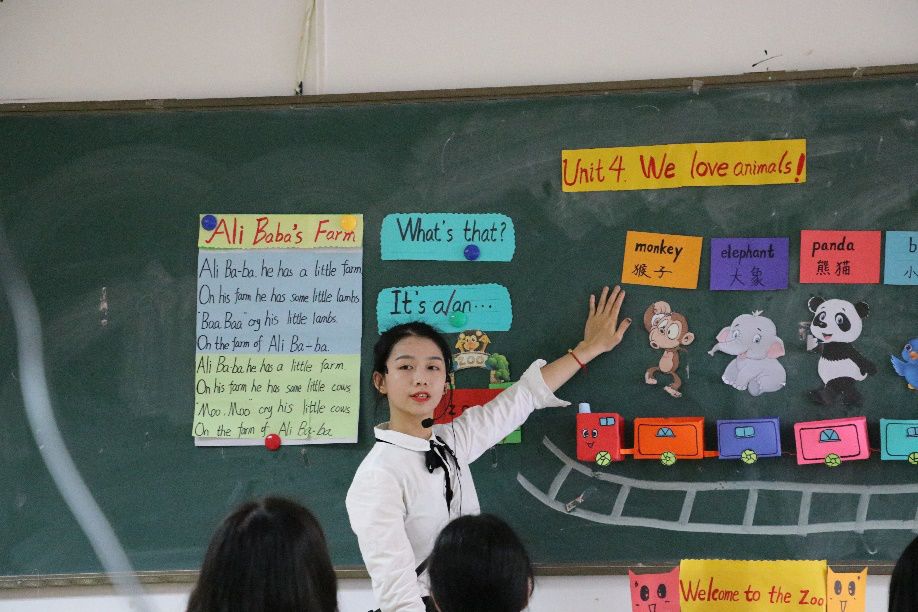 Unit 4. We love animals!
Ali Baba's Farm
Ali Ba-ba. he has a little farm
On his farm he has some little lambs
"Baa. Baa" cry his little lambs.
On the farm of Ali Ba-ba.
Ali Ba-ba. he has a little farm.
On his farm he has some little cows
"Moo. Moo" cry his little cows
On the farm of Ali Ba-ba
What's that?
It's a/an...
ZOO
monkey
猴子
elephant
大象
panda
熊猫
b
小
Z
Welcome to the Zoo